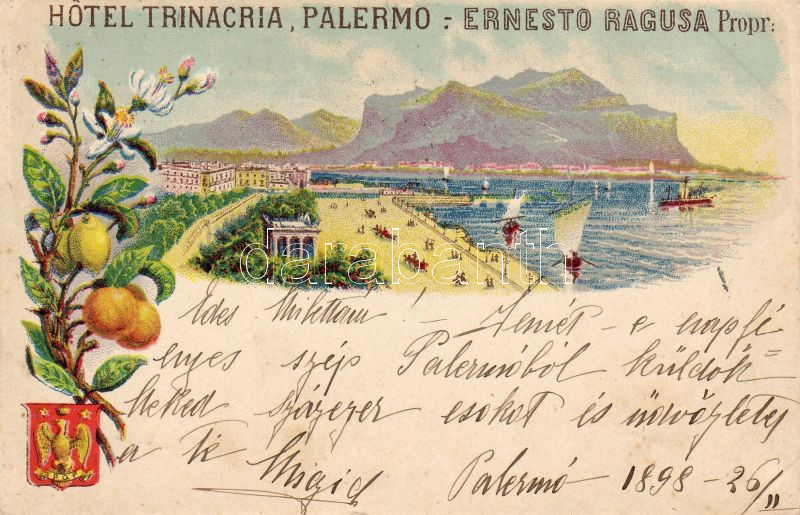 HÔTEL TRINACRIA, PALERMO : ERNESTO RAGUSA Propr:
darabanth
Édes
! Ismét - e napfé
nyes szép Palermóból küldök
Neked százezer csókot és üdvözletet
a Te
Palermó 1898 - 26/11